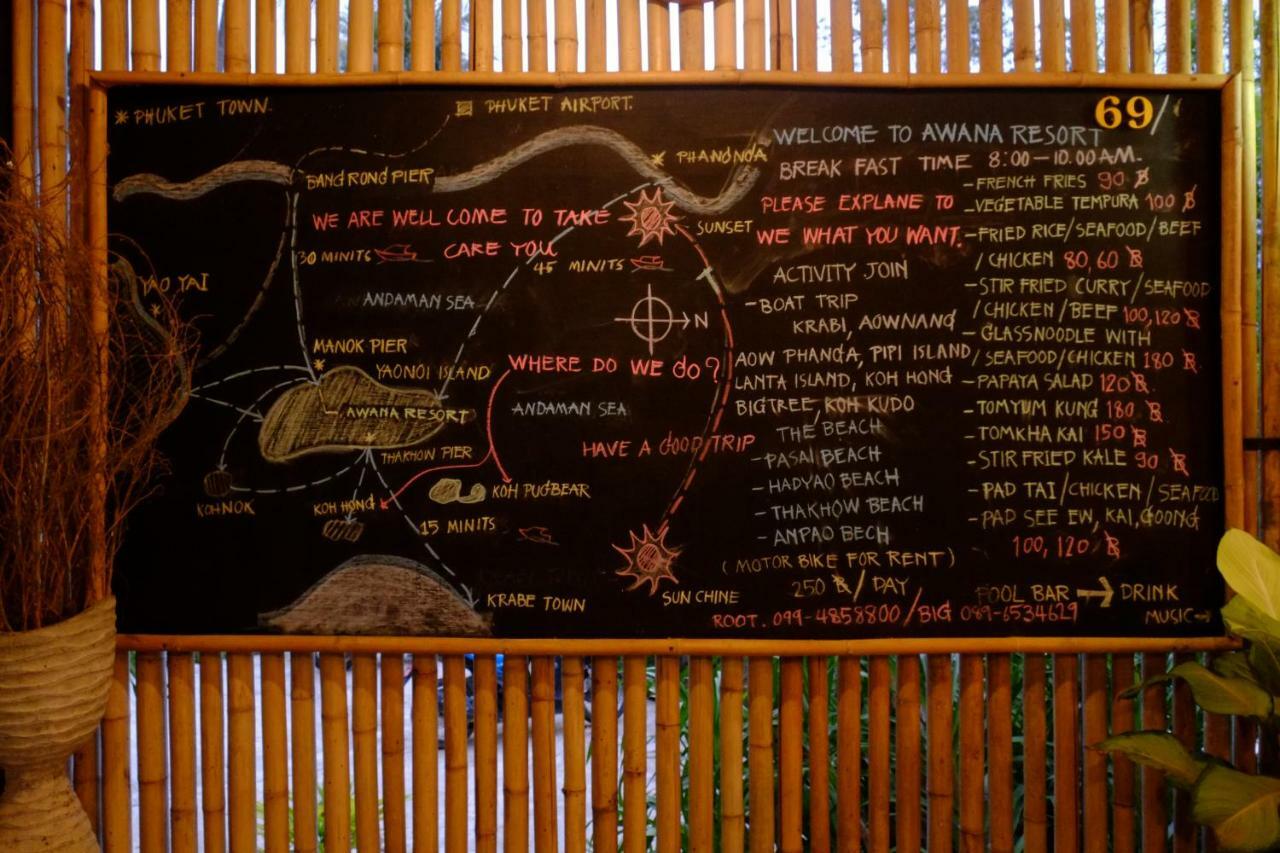 * PHUKET TOWN.
PHUKET AIRPORT.
BANGRONG PIER
PHANGNGA
WE ARE WELL COME TO TAKE
CARE YOU
SUNSET
30 MINITS
45 MINITS
YAO YAI
ANDAMAN SEA
N
MANOK PIER
YAONOI ISLAND
WHERE DO WE GO?
AWANA RESORT
ANDAMAN SEA
HAVE A GOOD TRIP
THAKHOW PIER
KOH NOK
KOH HONG
KOH PUGBEAR
15 MINITS
KRABE TOWN
SUN CHINE
69/
WELCOME TO AWANA RESORT
BREAK FAST TIME 8:00-10.00 AM.
PLEASE EXPLANE TO
WE WHAT YOU WANT.
ACTIVITY JOIN
-BOAT TRIP
KRABI, AOWNANG
AOW PHANGA, PIPI ISLAND
LANTA ISLAND, KOH HONG
BIGTREE, KOH KUDO
THE BEACH
-PASAI BEACH
-HADYAO BEACH
-THAKHOW BEACH
-ANPAO BECH
(MOTOR BIKE FOR RENT)
250 ฿/DAY
ROOT. 099-4858800/BIG 089-6534629
-FRENCH FRIES 90 ฿
-VEGETABLE TEMPURA 100 ฿
-FRIED RICE/SEAFOOD/BEEF
/CHICKEN 80,60 ฿
-STIR FRIED CURRY/SEAFOOD
/CHICKEN/BEEF 100,120 ฿
-GLASSNOODLE WITH
/SEAFOOD/CHICKEN 180 ฿.
-PAPAYA SALAD 120 ฿.
-TOMYUM KUNG 180 ฿
-TOMKHA KAI 150 ฿
-STIR FRIED KALE 90 ฿
-PAD TAI/CHICKEN/SEAFOOD
-PAD SEE EW, KAI, GOONG
100, 120 ฿
FOOL BAR → DRINK
MUSIC→